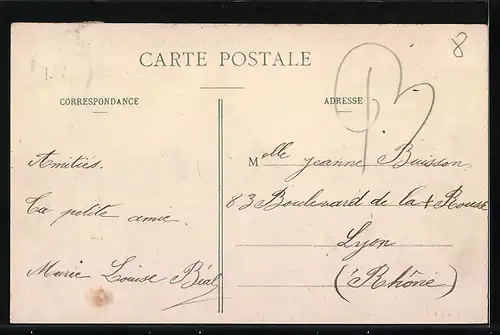 8
CARTE POSTALE
CORRESPONDANCE
ADRESSE
Amitiés.
Ta petite amie.
Marie Louise Béal
Melle Jeanne Buisson
83 Boulevard de la + Rousse
Lyon
(Rhône)